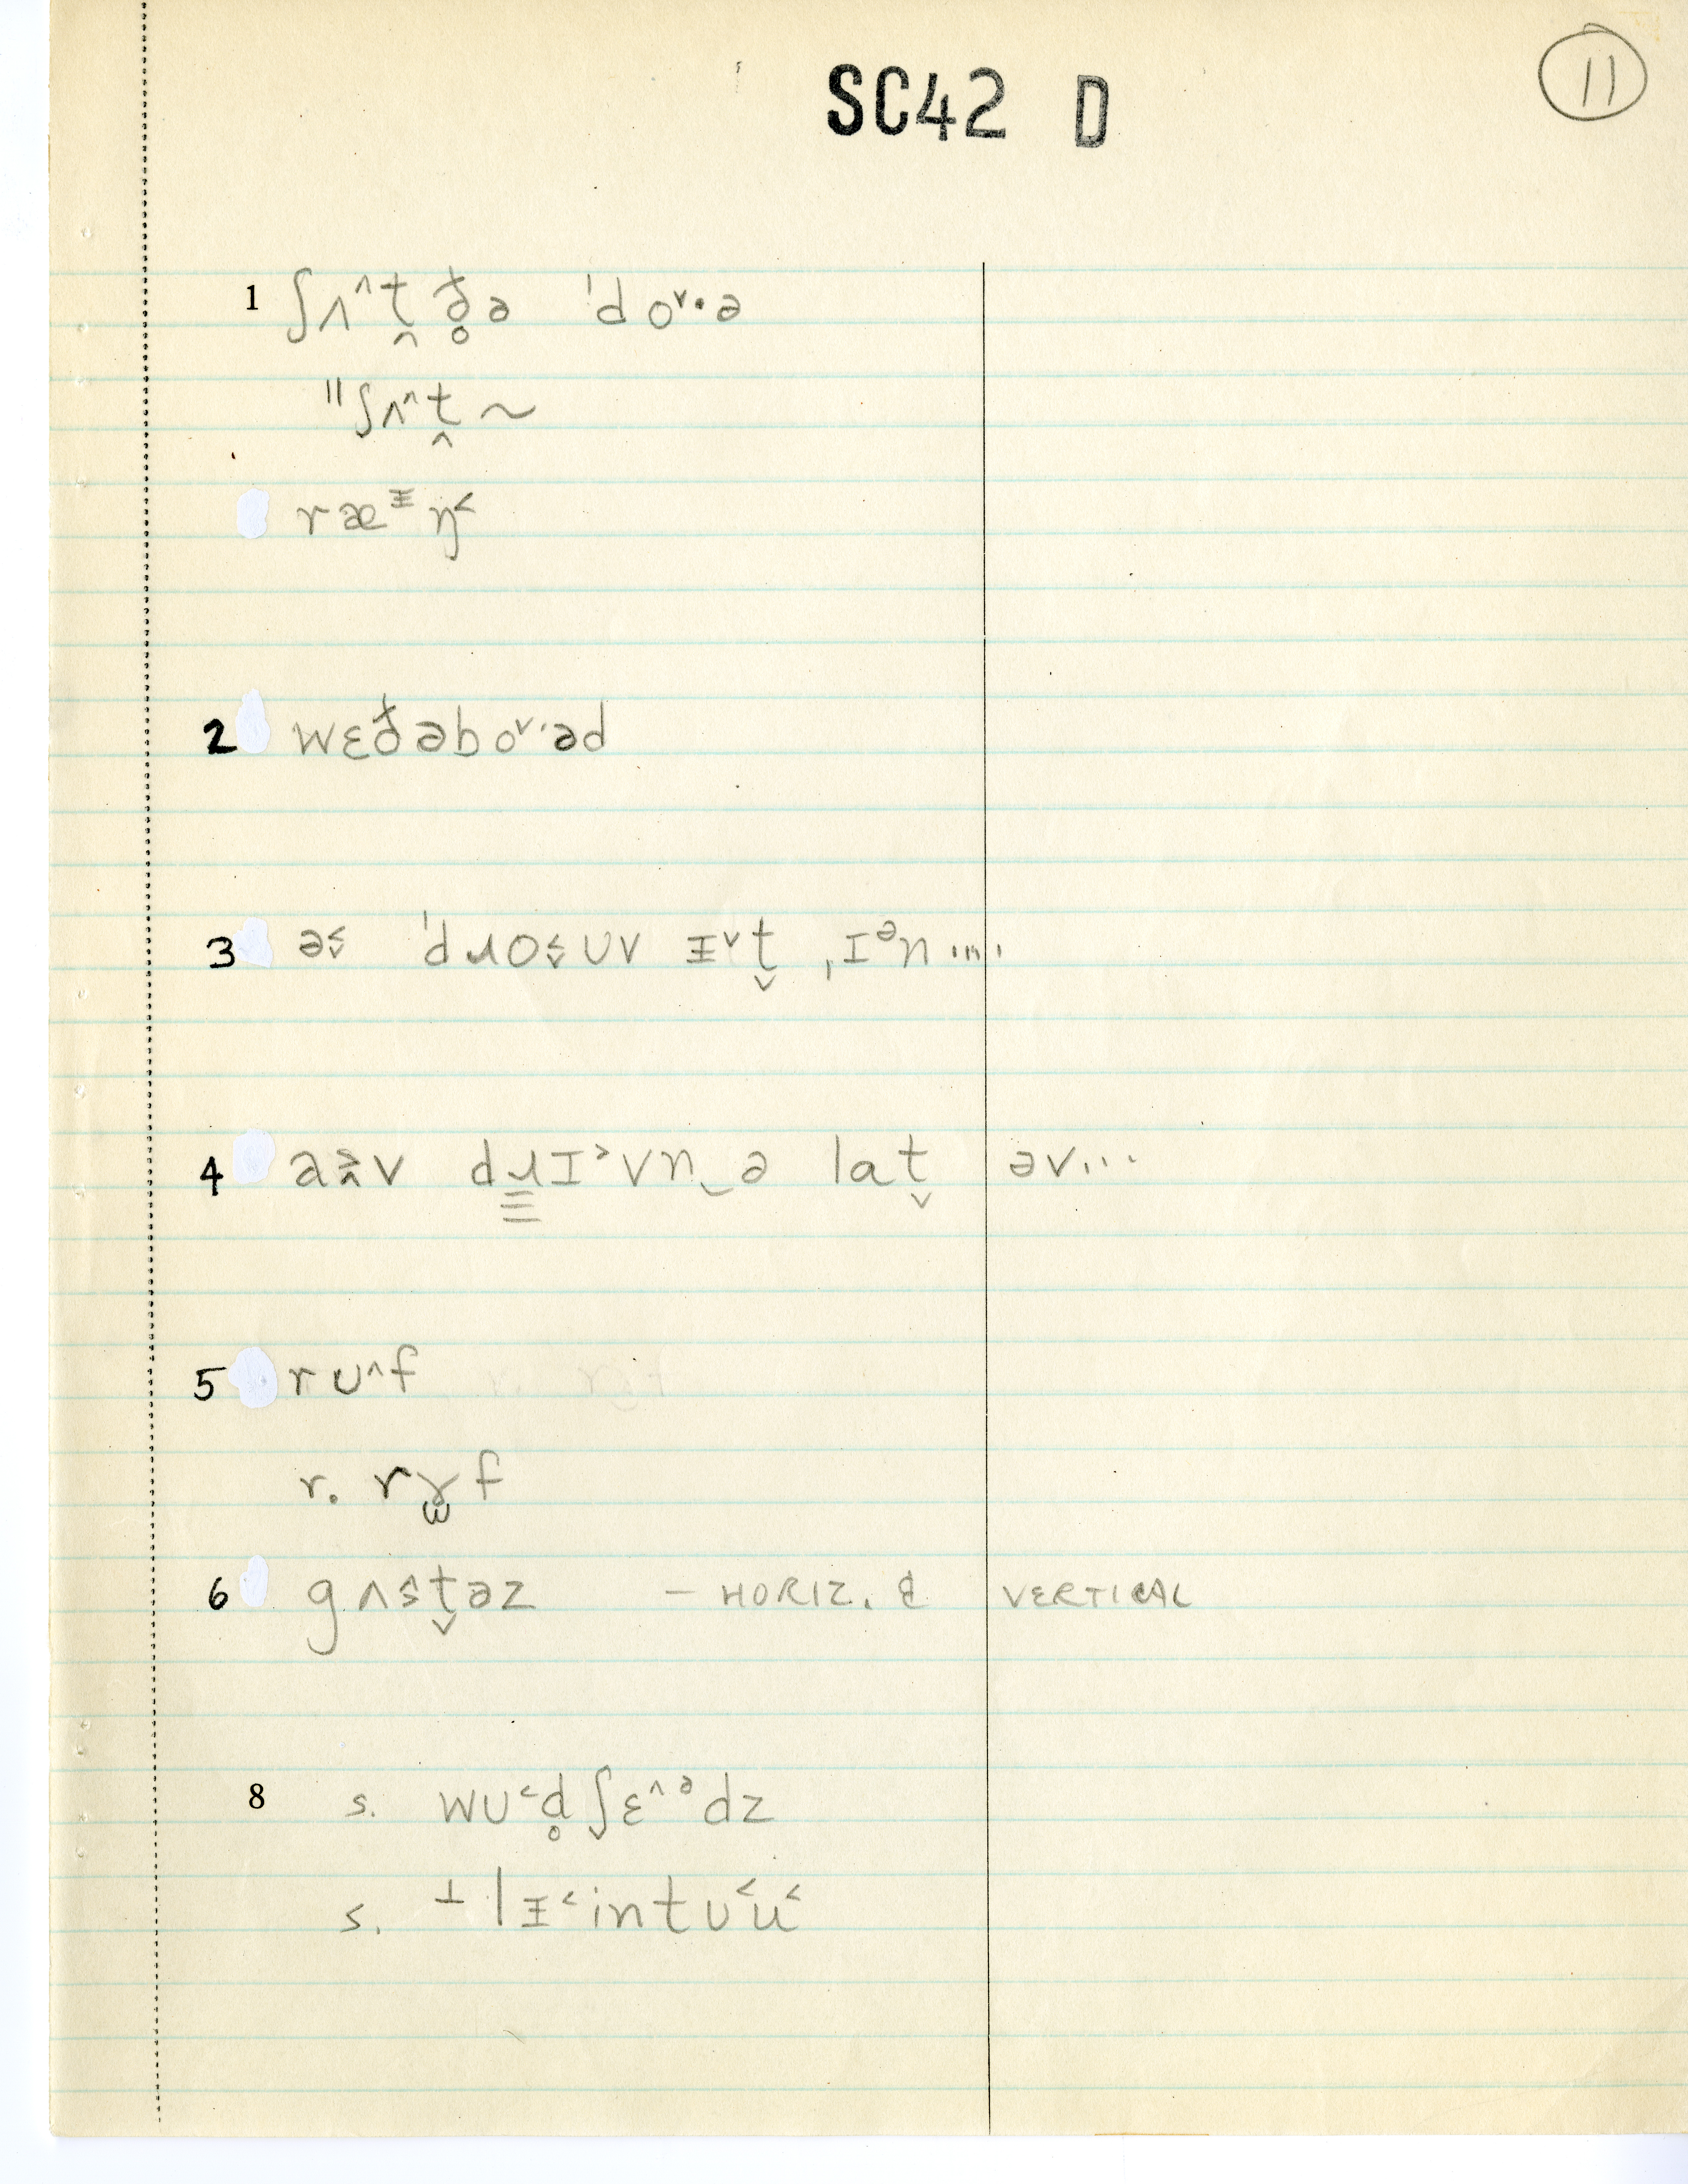 11
SC42 D
1 ʃʌ^t̬ ð̥ə ˈdoᵛ·ə
"ʃʌ^ṱ ~
ræᶧŋ˂
2 wɛðəboᵛ·əd
3 ə ˈdɹoʊv ɪᵛt̬ ˌɪᵊn ....
4 av dɹɪ˃vn‿ə lat̬ əv...
5 rʊ^f
r. rɤf
6 gʌst̬əz — HORIZ. & VERTICAL
8 s. wʊ˂d̥ʃɛ^ᵊdz
s. ⊥lᵻ˂intʊ˂u˂